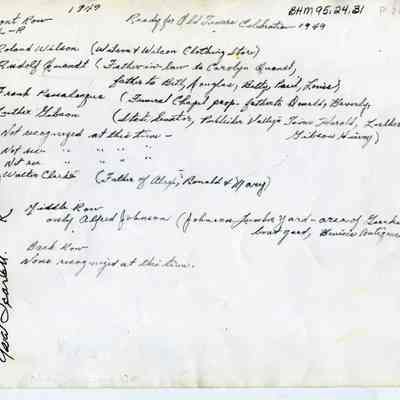 1949
BHM95.24.31
Ready for Old Timers Celebration 1949
Front Row
L-R
Roland Wilson (Wilson & Wilson Clothing Store)
Rudolf Quandt (Father-in-law to Carolyn Quandt,
father to Bill, Douglas, Betty, Paul, Louise)
Frank Passalacqua (Funeral Chapel prop. father to Donald, Beverly,
Luther Gibson (State Senator, Publisher Vallejo Times Herald, Luther
Gibson Hiway)
Not recognized at this time -
Not rec - " " " -
Not rec " " " -
Walter Clarke (Father of Alex, Ronald & Mary)
Middle Row
only Alfred Johnson (Johnson Lumber Yard - area of
boat yard, Antiques
Back Row
None recognized at this time.